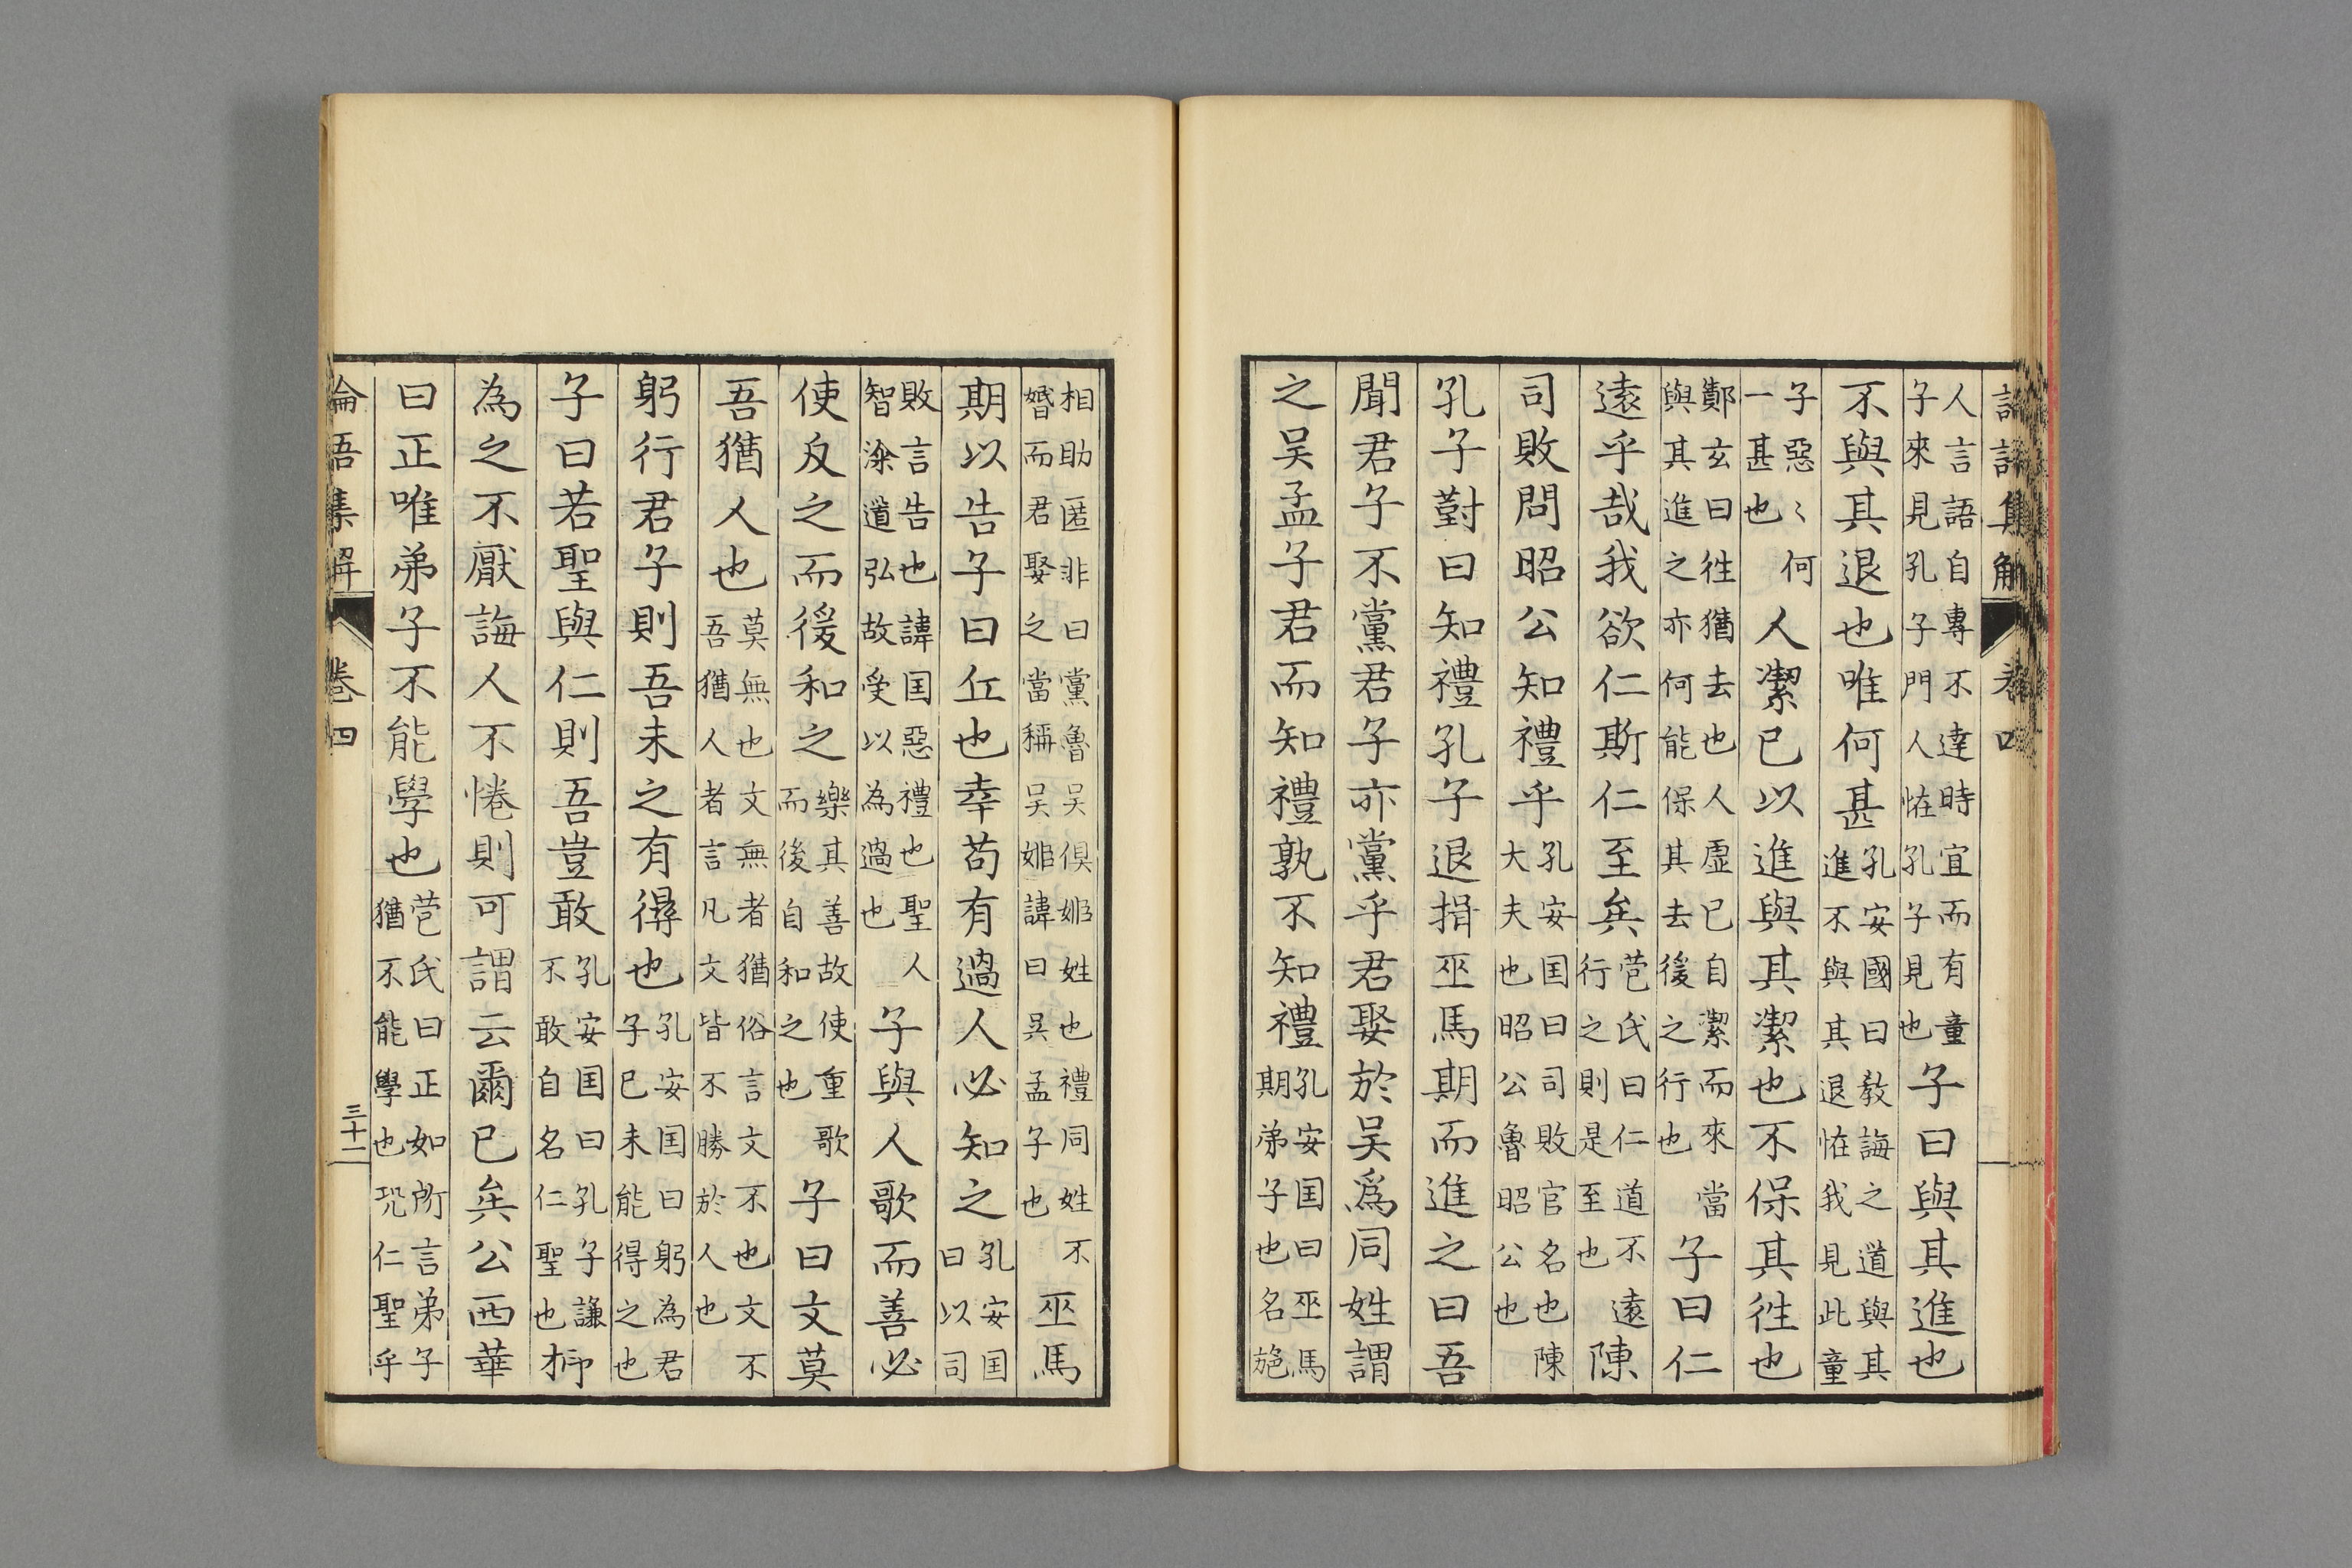 論語集解 卷四
人言語自專不達時宜而有童子來見孔子門人怪孔子見也子曰與其進也
不與其退也唯何甚孔安國曰教誨之道與其進不與其退怪我見此童
子惡〻何一甚也人潔已以進與其潔也不保其徃也
鄭玄曰徃猶去也人虛已自潔而來當與其進之亦何能保其去後之行也子曰仁
遠乎哉我欲仁斯仁至矣苞氏曰仁道不遠行之則是至也陳
司敗問昭公知禮乎孔安囯曰司敗官名也陳大夫也昭公魯昭公也
孔子對曰知禮孔子退揖巫馬期而進之曰吾
聞君子不黨君子亦黨乎君娶於吴爲同姓謂
之吴孟子君而知禮孰不知禮孔安囯曰巫馬期弟子也名施
相助匿非曰黨魯吴俱姬姓也禮同姓不婚而君娶之當稱吴姬諱曰吴孟子也巫馬
期以告子曰丘也幸苟有過人必知之孔安囯曰以司
敗言告也諱囯惡禮也聖人智深道弘故受以為過也子與人歌而善必
使反之而後和之樂其善故使重歌而後自和之也子曰文莫
吾猶人也莫無也文無者猶俗言文不也文不吾猶人者言凡文皆不勝於人也
躬行君子則吾未之有得也孔安囯曰躬為君子已未能得之也
子曰若聖與仁則吾豈敢孔安囯曰孔子謙不敢自名仁聖也抑
為之不厭誨人不惓則可謂云爾已矣公西華
曰正唯弟子不能學也苞氏曰正如所言弟子猶不能學也况仁聖乎
論語集解 卷四 三十二